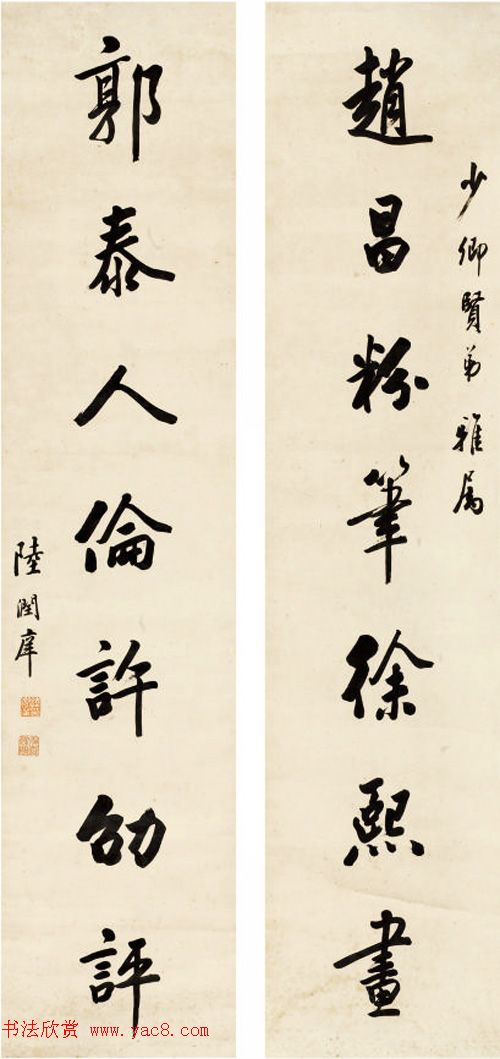 少卿賢弟雅属
趙昌粉筆徐熙畫
郭泰人倫許劭評
陸潤庠
书法欣赏 www.yac8.com